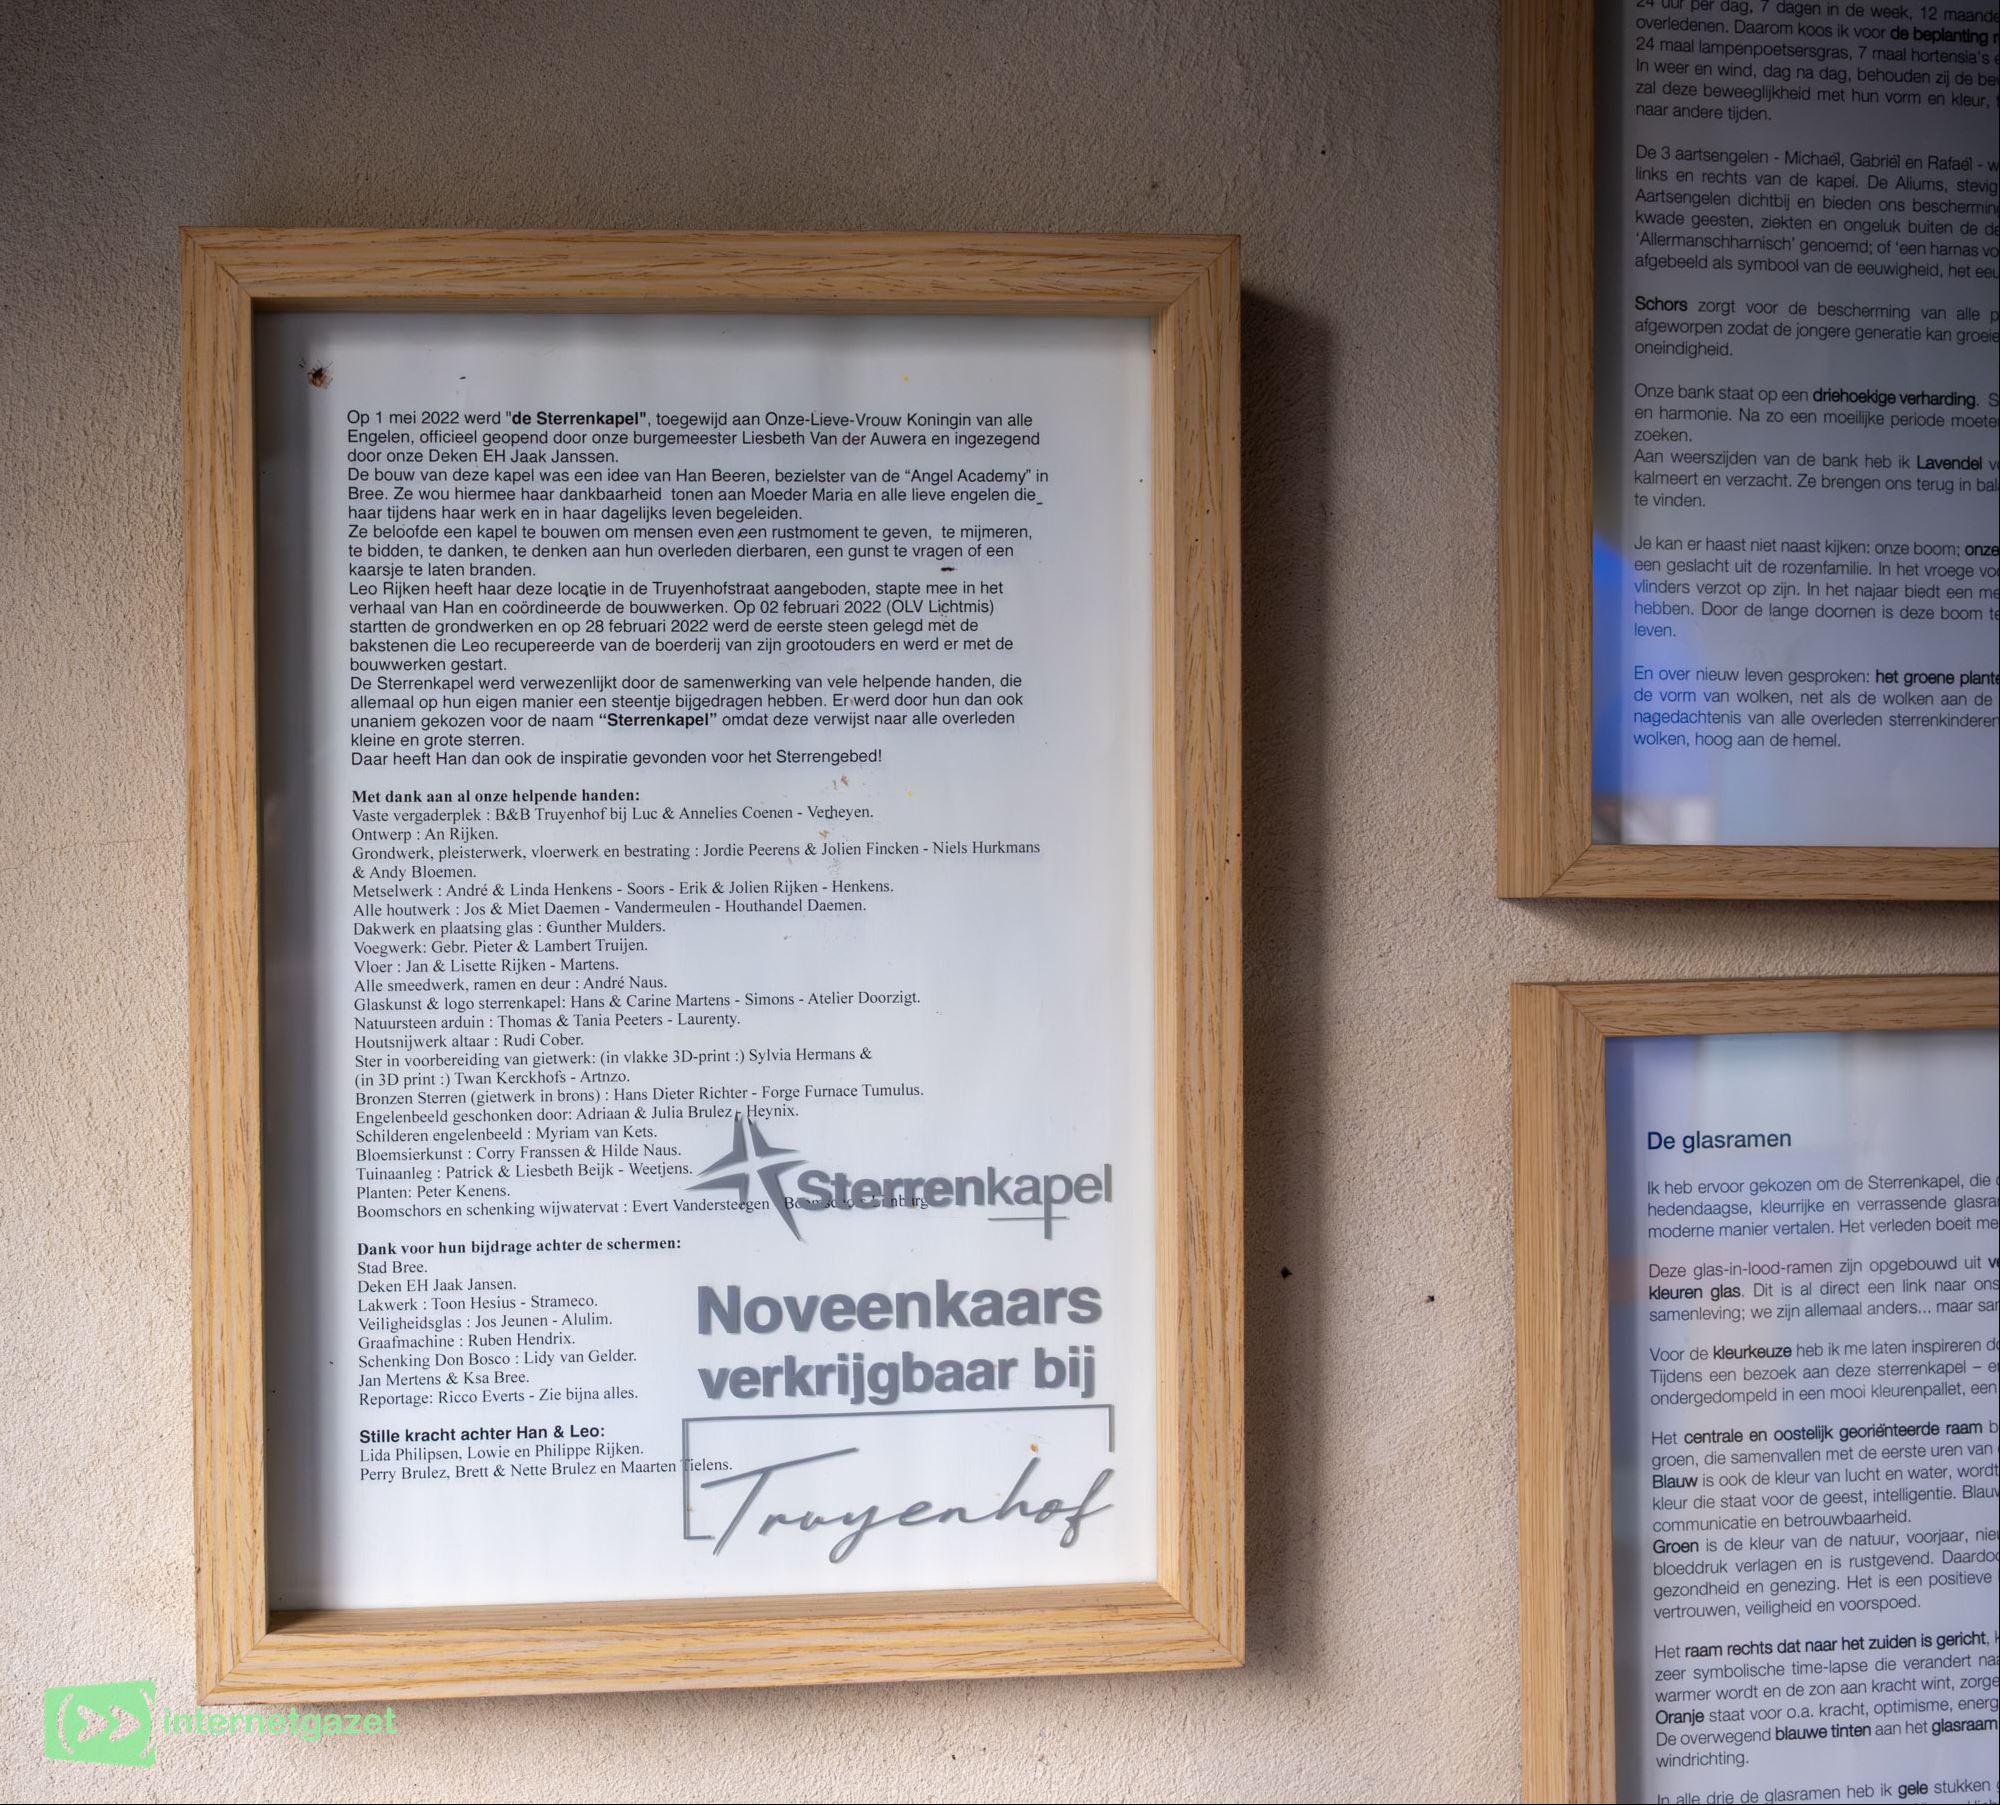 Op 1 mei 2022 werd "de Sterrenkapel", toegewijd aan Onze-Lieve-Vrouw Koningin van alle
Engelen, officieel geopend door onze burgemeester Liesbeth Van der Auwera en ingezegend
door onze Deken EH Jaak Janssen.
De bouw van deze kapel was een idee van Han Beeren, bezielster van de “Angel Academy” in
Bree. Ze wou hiermee haar dankbaarheid tonen aan Moeder Maria en alle lieve engelen die
haar tijdens haar werk en in haar dagelijks leven begeleiden.
Ze beloofde een kapel te bouwen om mensen even een rustmoment te geven, te mijmeren,
te bidden, te danken, te denken aan hun overleden dierbaren, een gunst te vragen of een
kaarsje te laten branden.
Leo Rijken heeft haar deze locatie in de Truyenhofstraat aangeboden, stapte mee in het
verhaal van Han en coördineerde de bouwwerken. Op 02 februari 2022 (OLV Lichtmis)
startten de grondwerken en op 28 februari 2022 werd de eerste steen gelegd met de
bakstenen die Leo recupereerde van de boerderij van zijn grootouders en werd er met de
bouwwerken gestart.
De Sterrenkapel werd verwezenlijkt door de samenwerking van vele helpende handen, die
allemaal op hun eigen manier een steentje bijgedragen hebben. Er werd door hun dan ook
unaniem gekozen voor de naam “Sterrenkapel” omdat deze verwijst naar alle overleden
kleine en grote sterren.
Daar heeft Han dan ook de inspiratie gevonden voor het Sterrengebed!
Met dank aan al onze helpende handen:
Vaste vergaderplek : B&B Truyenhof bij Luc & Annelies Coenen - Verheyen.
Ontwerp : An Rijken.
Grondwerk, pleisterwerk, vloerwerk en bestrating : Jordie Peerens & Jolien Fincken - Niels Hurkmans
& Andy Bloemen.
Metselwerk : André & Linda Henkens - Soors - Erik & Jolien Rijken - Henkens.
Alle houtwerk : Jos & Miet Daemen - Vandermeulen - Houthandel Daemen.
Dakwerk en plaatsing glas : Gunther Mulders.
Voegwerk: Gebr. Pieter & Lambert Truijen.
Vloer : Jan & Lisette Rijken - Martens.
Alle smeedwerk, ramen en deur : André Naus.
Glaskunst & logo sterrenkapel: Hans & Carine Martens - Simons - Atelier Doorzigt.
Natuursteen arduin : Thomas & Tania Peeters - Laurenty.
Houtsnijwerk altaar : Rudi Cober.
Ster in voorbereiding van gietwerk: (in vlakke 3D-print :) Sylvia Hermans &
(in 3D print :) Twan Kerckhofs - Artnzo.
Bronzen Sterren (gietwerk in brons) : Hans Dieter Richter - Forge Furnace Tumulus.
Engelenbeeld geschonken door: Adriaan & Julia Brulez - Heynix.
Schilderen engelenbeeld : Myriam van Kets.
Bloemsierkunst : Corry Franssen & Hilde Naus.
Tuinaanleg : Patrick & Liesbeth Beijk - Weetjens.
Planten: Peter Kenens.
Boomschors en schenking wijwatervat : Evert Vandersteegen
Sterrenkapel
Dank voor hun bijdrage achter de schermen:
Stad Bree.
Deken EH Jaak Jansen.
Lakwerk : Toon Hesius - Strameco.
Veiligheidsglas : Jos Jeunen - Alulim.
Graafmachine : Ruben Hendrix.
Schenking Don Bosco : Lidy van Gelder.
Jan Mertens & Ksa Bree.
Reportage: Ricco Everts - Zie bijna alles.
Stille kracht achter Han & Leo:
Lida Philipsen, Lowie en Philippe Rijken.
Perry Brulez, Brett & Nette Brulez en Maarten Tielens.
Noveenkaars
verkrijgbaar bij
Truyenhof
24 uur per dag, 7 dagen in de week, 12
overledenen. Daarom koos ik voor de beplanting
24 maal lampenpoetsersgras, 7 maal hortensia's
In weer en wind, dag na dag, behouden zij de
zal deze beweeglijkheid met hun vorm en kleur,
naar andere tijden.
De 3 aartsengelen - Michaël, Gabriël en Rafaël -
links en rechts van de kapel. De Aliums, stevig
Aartsengelen dichtbij en bieden ons
kwade geesten, ziekten en ongeluk buiten de
'Allermanschharnisch' genoemd; of 'een harnas
afgebeeld als symbool van de eeuwigheid, het
Schors zorgt voor de bescherming van alle
afgeworpen zodat de jongere generatie kan
oneindigheid.
Onze bank staat op een driehoekige verharding.
en harmonie. Na zo een moeilijke periode
zoeken.
Aan weerszijden van de bank heb ik Lavendel
kalmeert en verzacht. Ze brengen ons terug in
te vinden.
Je kan er haast niet naast kijken: onze boom; onze
een geslacht uit de rozenfamilie. In het vroege
vlinders verzot op zijn. In het najaar biedt een
hebben. Door de lange doornen is deze boom
leven.
En over nieuw leven gesproken: het groene
de vorm van wolken, net als de wolken aan de
nagedachtenis van alle overleden
wolken, hoog aan de hemel.
De glasramen
Ik heb ervoor gekozen om de Sterrenkapel, die
hedendaagse, kleurrijke en verrassende
moderne manier vertalen. Het verleden boeit
Deze glas-in-lood-ramen zijn opgebouwd uit
kleuren glas. Dit is al direct een link naar
samenleving; we zijn allemaal anders... maar
Voor de kleurkeuze heb ik me laten inspireren
Tijdens een bezoek aan deze sterrenkapel –
ondergedompeld in een mooi kleurenpallet, een
Het centrale en oostelijk georiënteerde raam
groen, die samenvallen met de eerste uren van
Blauw is ook de kleur van lucht en water, wordt
kleur die staat voor de geest, intelligentie.
communicatie en betrouwbaarheid.
Groen is de kleur van de natuur, voorjaar,
bloeddruk verlagen en is rustgevend.
gezondheid en genezing. Het is een positieve
vertrouwen, veiligheid en voorspoed.
Het raam rechts dat naar het zuiden is gericht,
zeer symbolische time-lapse die verandert
warmer wordt en de zon aan kracht wint,
Oranje staat voor o.a. kracht, optimisme,
De overwegend blauwe tinten aan het glasraam
windrichting.
In alle drie de glasramen heb ik gele stukken
internetgazet